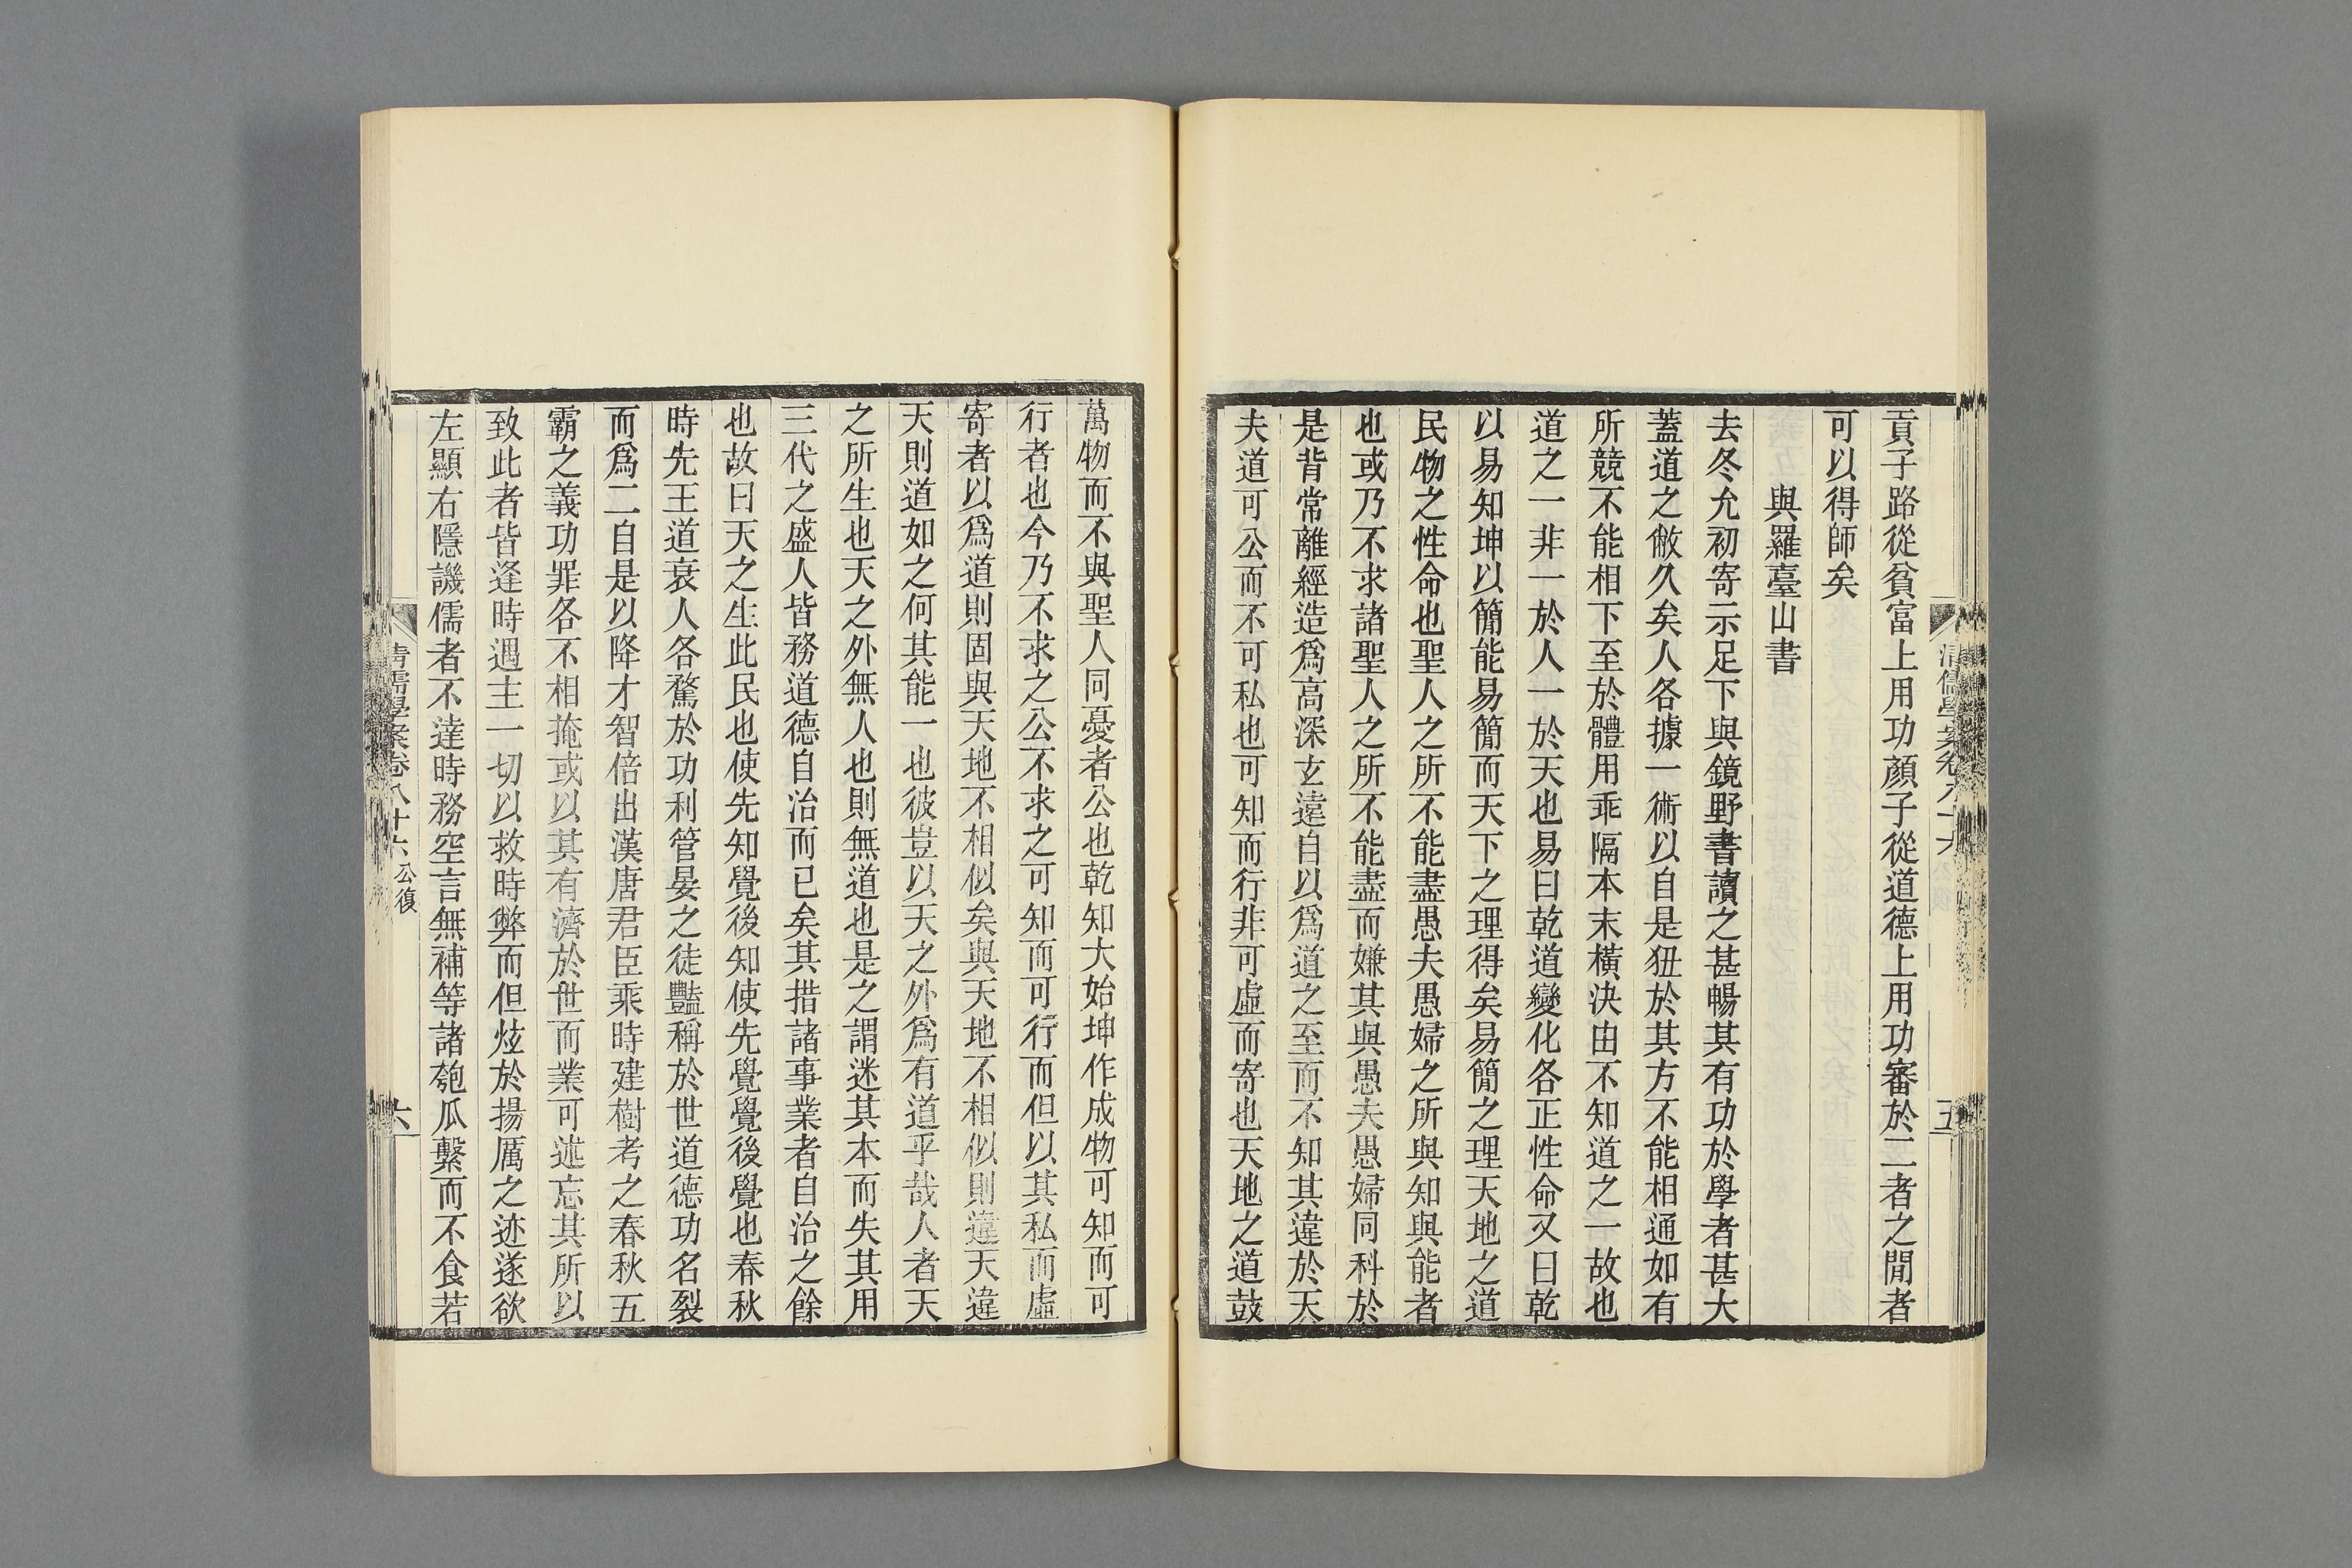 貢子路從貧富上用功顏子從道德上用功審於二者之閒者
可以得師矣
與羅臺山書
去冬允初寄示足下與鏡野書讀之甚暢其有功於學者甚大
蓋道之敝久矣人各據一術以自是狃於其方不能相通如有
所競不能相下至於體用乖隔本末橫決由不知道之一故也
道之一非一於人一於天也易曰乾道變化各正性命又曰乾
以易知坤以簡能易簡而天下之理得矣易簡之理天地之道
民物之性命也聖人之所不能盡愚夫愚婦之所與知與能者
也或乃不求諸聖人之所不能盡而嫌其與愚夫愚婦同科於
是背常離經造爲高深玄遠自以爲道之至而不知其違於天
夫道可公而不可私也可知而行非可虛而寄也天地之道鼓
清儒學案卷八十六
五
萬物而不與聖人同憂者公也乾知大始坤作成物可知而可
行者也今乃不求之公不求之可知而可行而但以其私而虛
寄者以爲道則固與天地不相似矣與天地不相似則違天違
天則道如之何其能一也彼豈以天之外爲有道乎哉人者天
之所生也天之外無人也則無道也是之謂迷其本而失其用
三代之盛人皆務道德自治而已矣其措諸事業者自治之餘
也故曰天之生此民也使先知覺後知使先覺覺後覺也春秋
時先王道衰人各騖於功利管晏之徒豔稱於世道德功名裂
而爲二自是以降才智倍出漢唐君臣乘時建樹考之春秋五
霸之義功罪各不相掩或以其有濟於世而業可述忘其所以
致此者皆逢時遇主一切以救時弊而但炫於揚厲之迹遂欲
左顯右隱譏儒者不達時務空言無補等諸匏瓜繫而不食若
清儒學案卷八十六 公復
六